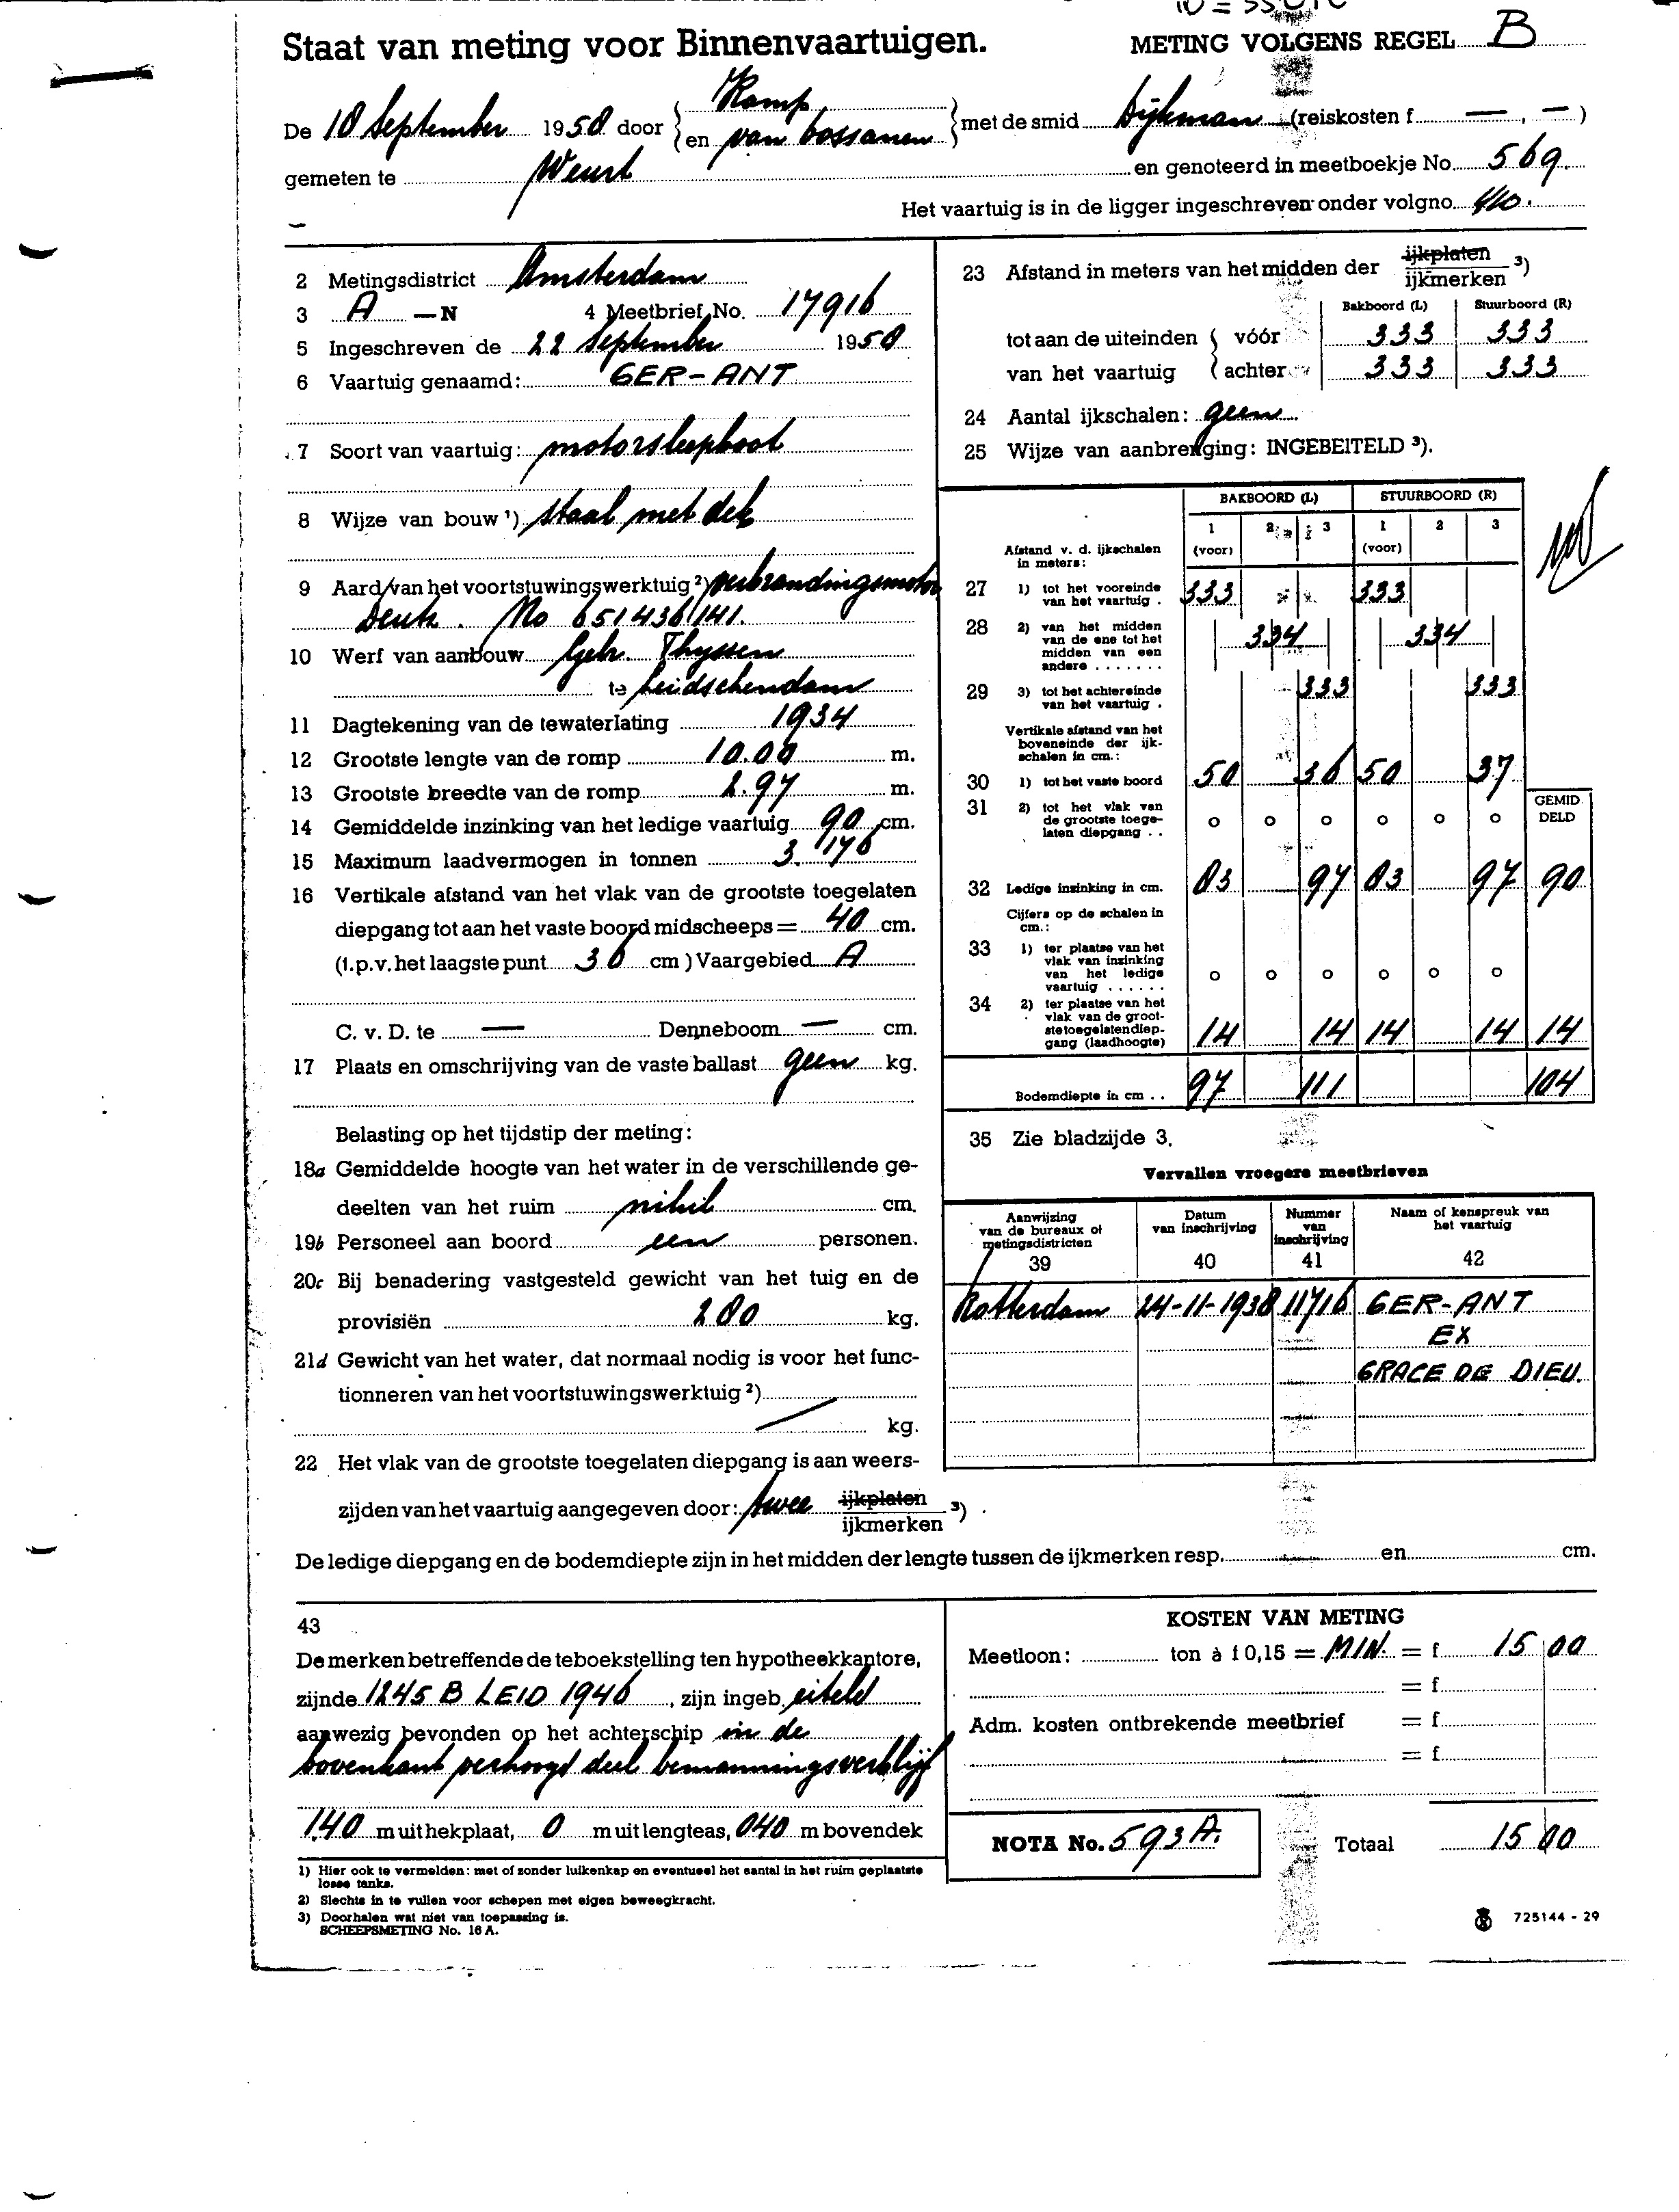 Staat van meting voor Binnenvaartuigen.
METING VOLGENS REGEL B
De 18 September 1958 door { Kamp en van Dossanen } met de smid Dijkman (reiskosten f —, —)
gemeten te Weurt en genoteerd in meetboekje No. 569.
Het vaartuig is in de ligger ingeschreven onder volgno. 410.
2 Metingsdistrict Amsterdam
3 A —N 4 Meetbrief No. 17916
5 Ingeschreven de 22 September 1958
6 Vaartuig genaamd: GER-ANT
7 Soort van vaartuig: motorsleepboot
8 Wijze van bouw ¹) staal met dek
9 Aard van het voortstuwingswerktuig ²) verbrandingsmotor
Deutz. No 651436/141.
10 Werf van aanbouw Gebr. Thyssen
te Leidschendam
11 Dagtekening van de tewaterlating 1934
12 Grootste lengte van de romp 10.00 m.
13 Grootste breedte van de romp 2.97 m.
14 Gemiddelde inzinking van het ledige vaartuig 90 cm.
15 Maximum laadvermogen in tonnen 3.176
16 Vertikale afstand van het vlak van de grootste toegelaten
diepgang tot aan het vaste boord midscheeps = 40 cm.
(t.p.v. het laagste punt 36 cm) Vaargebied A
C. v. D. te — Denneboom — cm.
17 Plaats en omschrijving van de vaste ballast geen kg.
Belasting op het tijdstip der meting:
18a Gemiddelde hoogte van het water in de verschillende ge-
deelten van het ruim nihil cm.
19b Personeel aan boord een personen.
20c Bij benadering vastgesteld gewicht van het tuig en de
provisiën 200 kg.
21d Gewicht van het water, dat normaal nodig is voor het func-
tionneren van het voortstuwingswerktuig ²)
kg.
22 Het vlak van de grootste toegelaten diepgang is aan weers-
zijden van het vaartuig aangegeven door: twee ijkplaten ijkmerken ³)
23 Afstand in meters van het midden der ijkplaten ijkmerken ³)
Bakboord (L) Stuurboord (R)
tot aan de uiteinden vóór 333 333
van het vaartuig achter 333 333
24 Aantal ijkschalen: geen
25 Wijze van aanbrenging: INGEBEITELD ³).
BAKBOORD (L) STUURBOORD (R)
1 2 3 1 2 3
(voor) (voor)
Afstand v. d. ijkschalen
in meters:
27 1) tot het vooreinde
van het vaartuig . 333 333
28 2) van het midden
van de ene tot het
midden van een
andere . . . . . . . 334 334
29 3) tot het achtereinde
van het vaartuig . 333 333
Vertikale afstand van het
boveneinde der ijk-
schalen in cm.:
30 1) tot het vaste boord 50 36 50 37
31 2) tot het vlak van
de grootste toege-
laten diepgang . . o o o o o o
GEMID
DELD
32 Ledige inzinking in cm. 83 97 83 97 90
Cijfers op de schalen in
cm.:
33 1) ter plaatse van het
vlak van inzinking
van het ledige
vaartuig . . . . . . o o o o o o
34 2) ter plaatse van het
vlak van de groot-
ste toegelaten diep-
gang (laadhoogte) 14 14 14 14 14
Bodemdiepte in cm . . 97 111 104
35 Zie bladzijde 3.
Vervallen vroegere meetbrieven
Aanwijzing
van de bureaux of
metingsdistricten
39
Datum
van inschrijving
40
Nummer
van
inschrijving
41
Naam of kenspreuk van
het vaartuig
42
Rotterdam 24-11-1938 11716 GER-ANT
EX
GRACE DE DIEU.
De ledige diepgang en de bodemdiepte zijn in het midden der lengte tussen de ijkmerken resp. en cm.
43
De merken betreffende de teboekstelling ten hypotheekkantore,
zijnde 1245 B LEID 1946, zijn ingeb eiteld
aanwezig bevonden op het achterschip in de
bovenkant verhoogd deel bemanningsverblijf
1.40 m uit hekplaat, 0 m uit lengteas, 040 m bovendek
KOSTEN VAN METING
Meetloon: ton à f 0,15 = MIN. = f 15 00
= f
Adm. kosten ontbrekende meetbrief = f
= f
NOTA No. 593A.
Totaal 15 00
1) Hier ook te vermelden: met of zonder luikenkap en eventueel het aantal in het ruim geplaatste
losse tanks.
2) Slechts in te vullen voor schepen met eigen beweegkracht.
3) Doorhalen wat niet van toepassing is.
SCHEEPSMETING No. 16 A.
725144 - 29